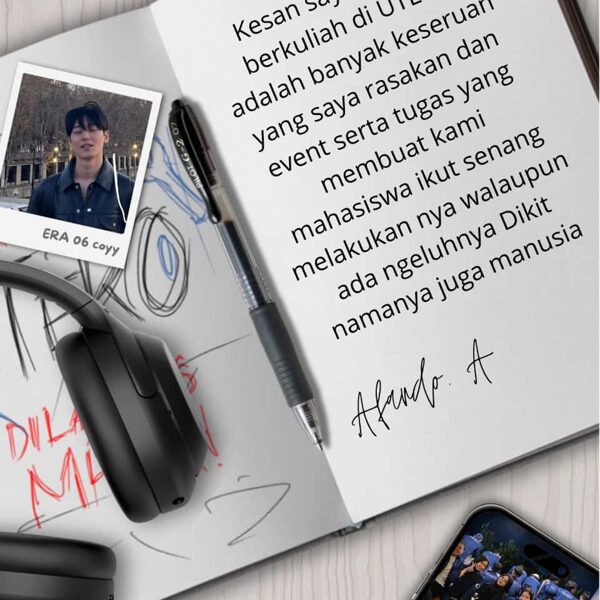 Kesan
berkuliah di
adalah banyak keseruan
yang saya rasakan dan
event serta tugas yang
membuat kami
mahasiswa ikut senang
melakukan nya walaupun
ada ngeluhnya Dikit
namanya juga manusia
Afando. A
ERA 06 coyy
PILOT G-2 07